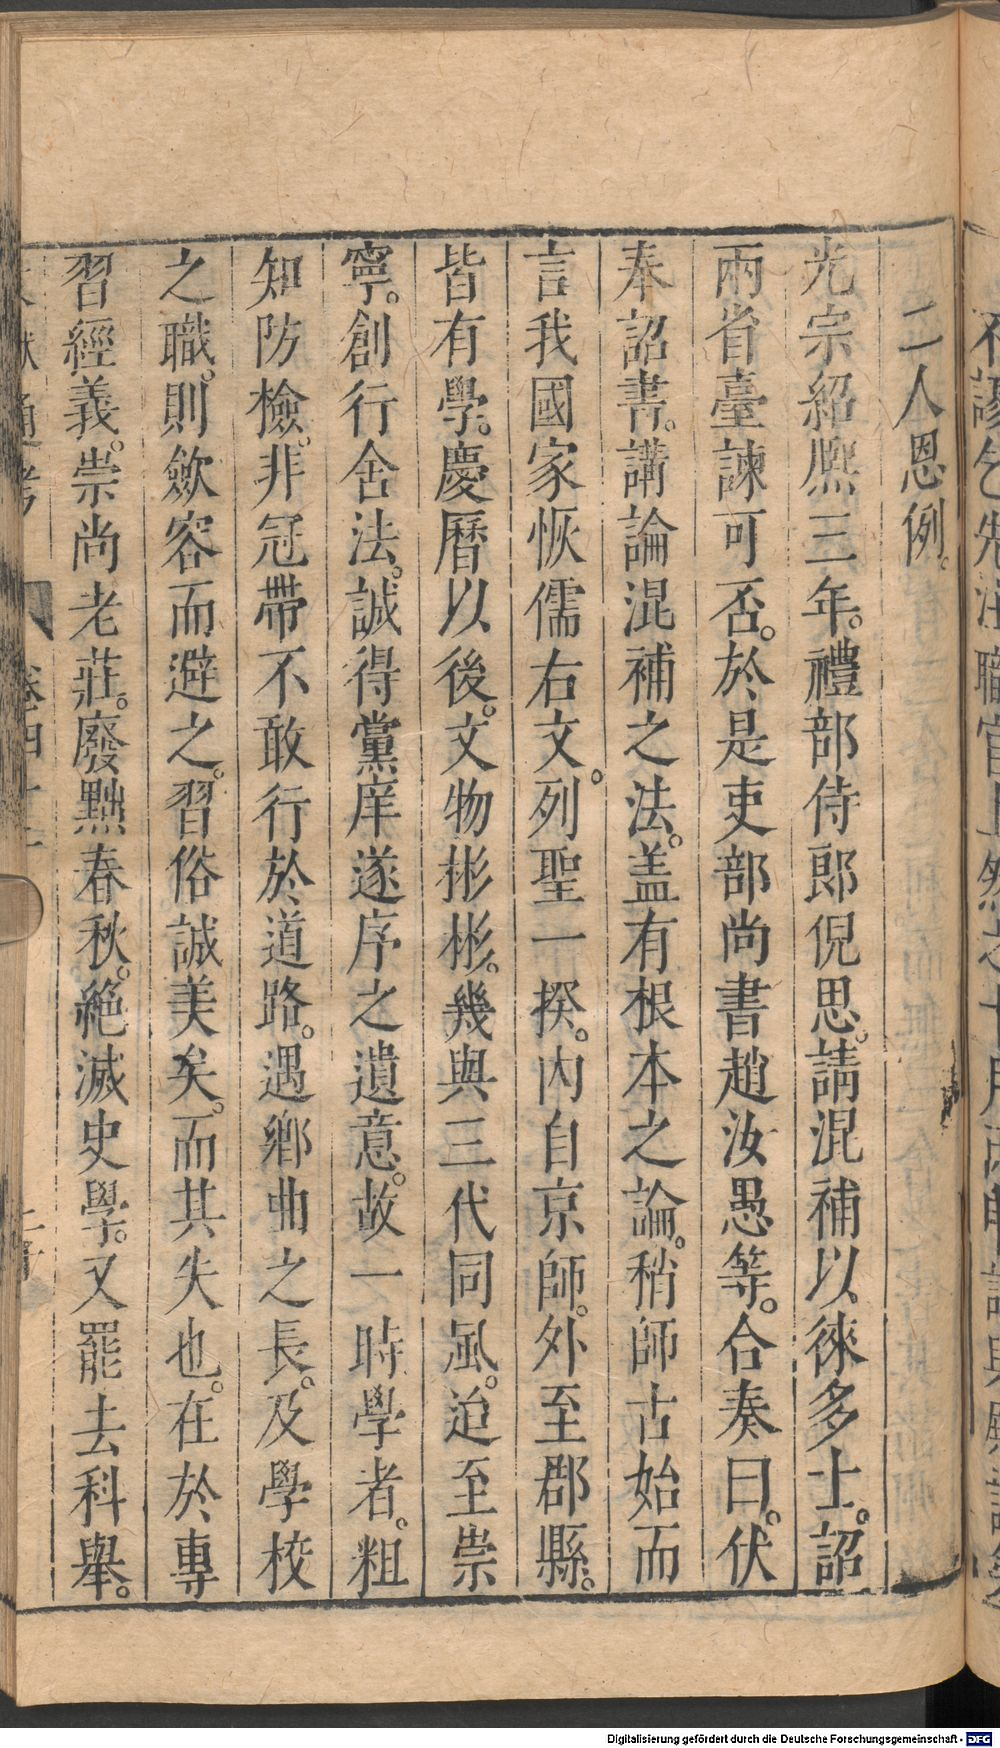 二人恩例。
光宗紹熈三年。禮部侍郎倪思。請混補以徠多士。詔
兩省臺諫可否。於是吏部尚書趙汝愚等。合奏曰。伏
奉詔書。講論混補之法。盖有根本之論。稍師古始而
言我國家恢儒右文。列聖一揆。内自京師。外至郡縣。
皆有學。慶曆以後。文物彬彬。幾與三代同風。迨至崇
寧。創行舍法。誠得黨庠遂序之遺意。故一時學者。粗
知防檢。非冠帶不敢行於道路。遇鄉曲之長。及學校
之職。則歛容而避之。習俗誠美矣。而其失也。在於專
習經義。崇尚老莊。廢黜春秋。絶滅史學。又罷去科舉。
通考 卷四十二
Digitalisierung gefördert durch die Deutsche Forschungsgemeinschaft - DFG